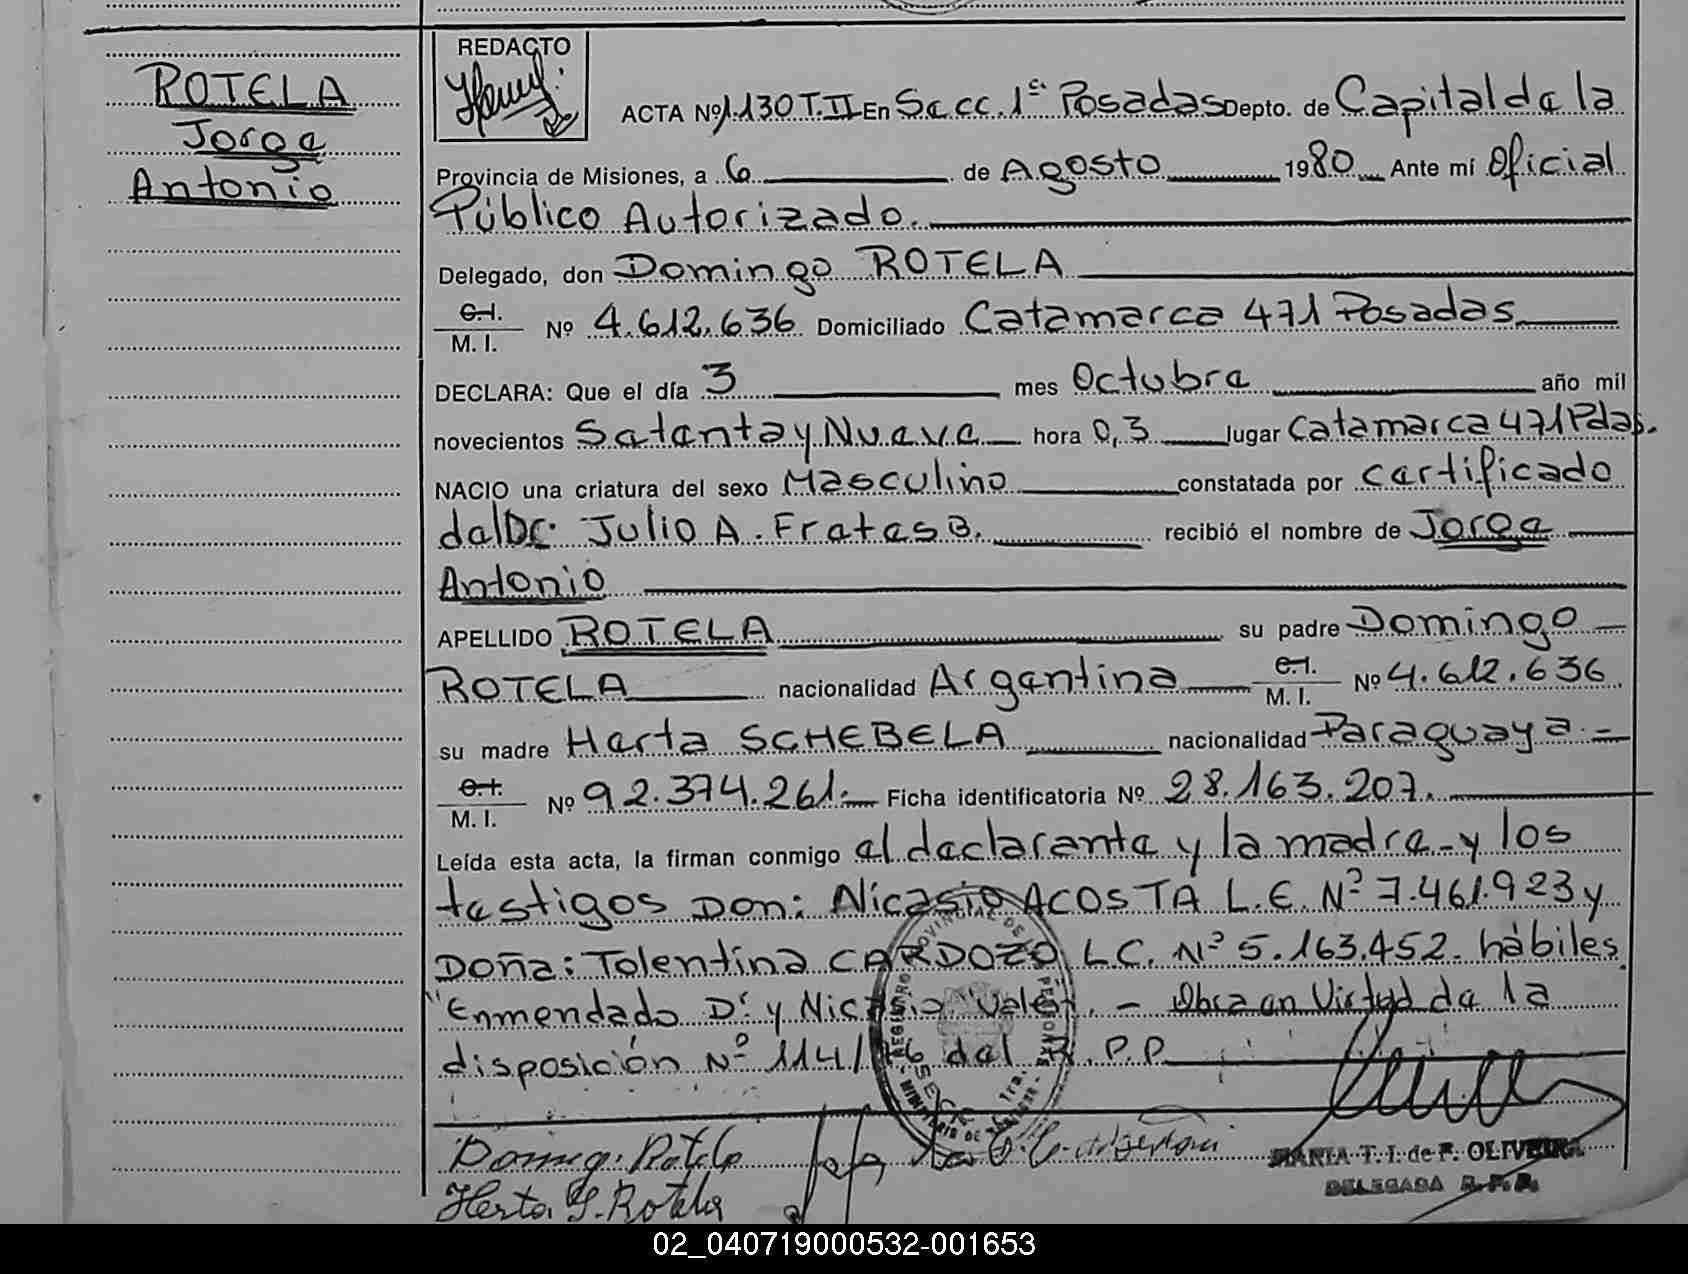 ROTELA
Jorge
Antonio
REDACTO
ACTA Nº 1.130 T.II En Secc. 1ª Posadas Depto. de Capital de la
Provincia de Misiones, a 6 de Agosto 1980 Ante mí Oficial
Público Autorizado.
Delegado, don Domingo ROTELA
C.I. M. I. Nº 4.612.636 Domiciliado Catamarca 471 Posadas
DECLARA: Que el día 3 mes Octubre año mil
novecientos Setenta y Nueve hora 0,3 lugar Catamarca 471 Pdas.
NACIO una criatura del sexo Masculino constatada por certificado
del Dr. Julio A. Fretes B. recibió el nombre de Jorge
Antonio
APELLIDO ROTELA su padre Domingo
ROTELA nacionalidad Argentina C.I. M. I. Nº 4.612.636
su madre Herta SCHEBELA nacionalidad Paraguaya.-
C.I. M. I. Nº 92.374.261.- Ficha identificatoria Nº 28.163.207.
Leída esta acta, la firman conmigo el declarante y la madre - y los
testigos Don: Nicasio ACOSTA L.E. Nº 7.461.923 y
Doña: Tolentina CARDOZO L.C. Nº 5.163.452. hábiles
"Enmendado Dr y Nicasio" Valen. - Obra en Virtud de la
disposición Nº 114/76 del R.P.P.
REGISTRO PROVINCIAL DE LAS PERSONAS
Doming. Rotela
Herta S. Rotela
MARIA T. I. de F. OLIVEIRA
DELEGADA R. P. P.
02_040719000532-001653